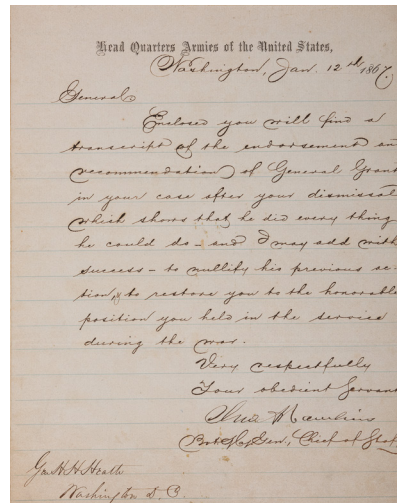 Head Quarters Armies of the United States,
Washington, Jan. 12th 1867.
General
Enclosed you will find a
transcript of the endorsement an
recommendation of General Grant
in your case after your dismissal
which shows that he did every thing
he could do - and I may add with
success - to nullify his previous ac-
tion, & to restore you to the honorable
position you held in the service
during the war.
Very respectfully
Your obedient Servant
Jno A Rawlins
Bvt Maj Gen, Chief of Staf
Gen H. H. Heath
Washington D. C.